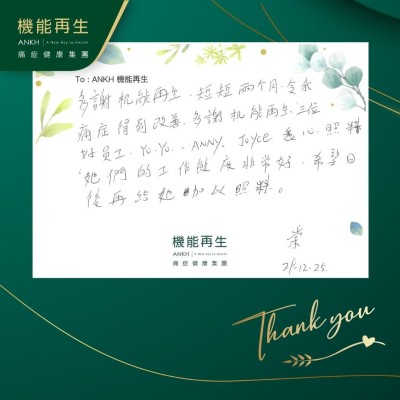 機能再生
ANKH | A New Key to Health
痛症健康集團
To : ANKH 機能再生
多謝机能再生. 短短兩个月. 令我
痛症得到改善. 多謝机能再生. 三位
好員工. Yo.Yo.. ANNY. Joyce. 悉心照料
她們的工作態度非常好. 希望日
後再給她加以照料。
機能再生
ANKH | A New Key to Health
痛症健康集團
棠
21-12-25.
Thank you